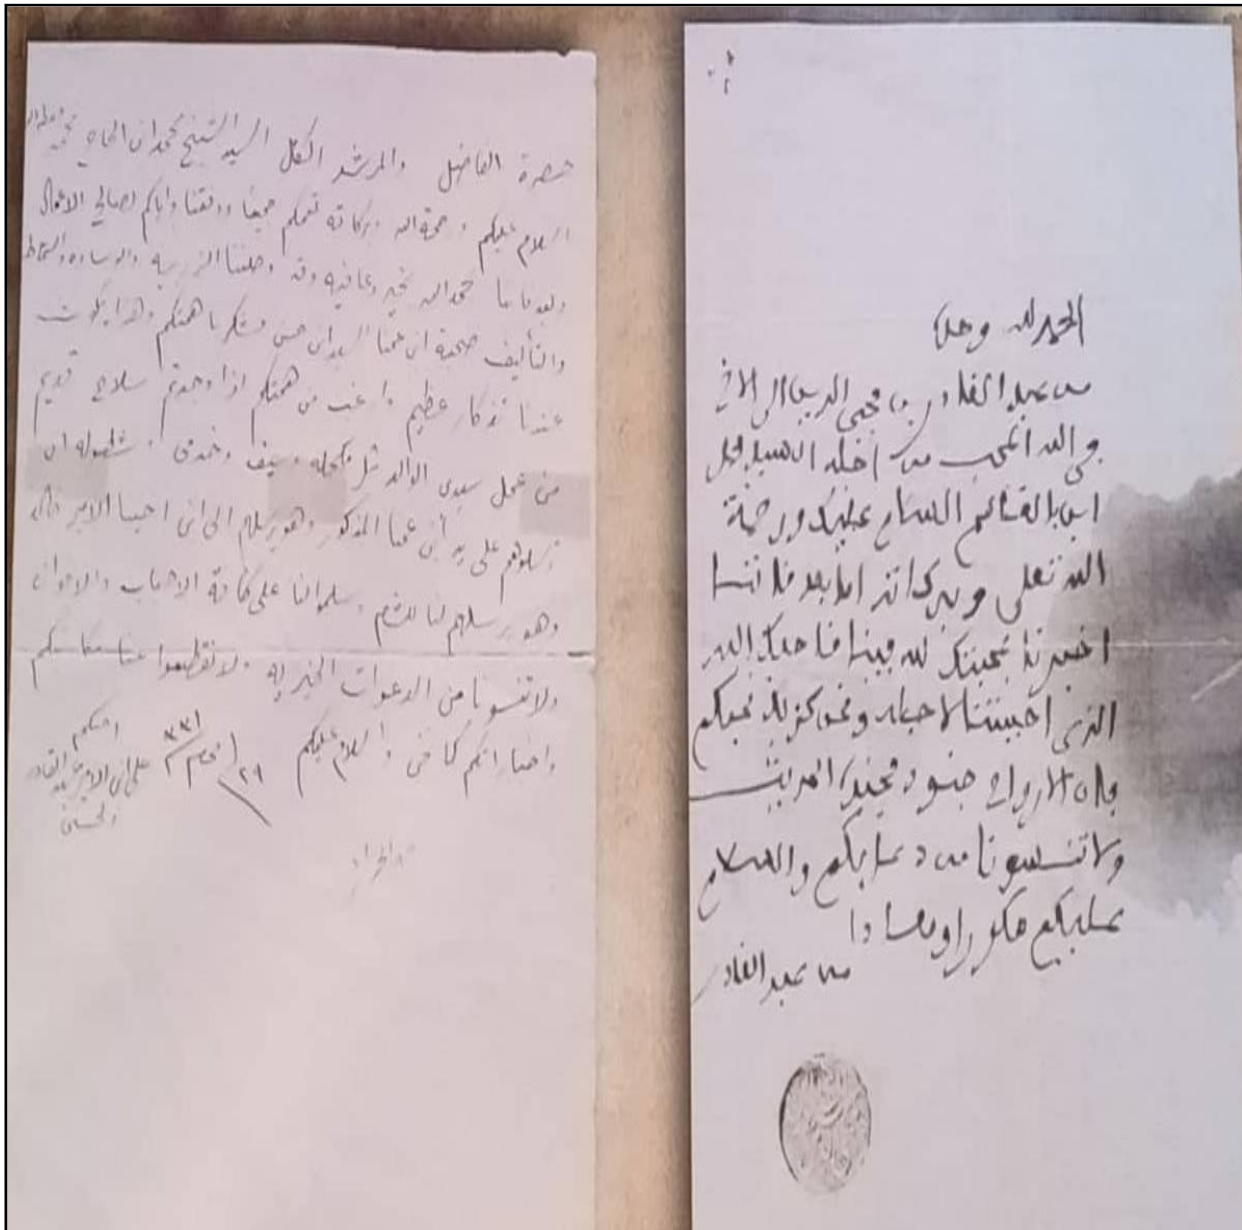 الحمد لله وحده
من عبد القادر بن محيي الدين إلى الأخ
في الله المحب من أجله السيد محمد
ابن بالقاسم السلام عليك ورحمة
الله تعلى وبركاته اما بعد فإننا
اخبرنا بمحبتك لله فينا فاحبك الله
الذي احببتنا لاجله ونحن كذلك نحبكم
فإن الارواح جنود مجندة الحديث
ولا تنسونا من دعايكم والسلام
عليكم مكررا ومعادا
من عبد القادر
حضرة الفاضل والمرشد الكامل السيد الشيخ محمد ابن الحاج محمد
السلام عليكم ورحمة الله وبركاته تعمكم جميعا ووفقنا واياكم لصالح الاعمال
وبعد فاننا بحمد الله بخير وعافيه وقد وصلتنا الزربيه والوساده والسماط
والتأليف صحبة ابن عمنا السيد ابن حسن فنشكر همتكم وهذا يكون
عندنا تذكار عظيم وارغب من همتكم اذا وجدتم سلاح قديم
من عمل سيدي الوالد مثل مكحله وسيف وخدمى
ترسلوهم على يد ابن عمنا المذكور وهو يرسلهم الى ابن اخينا الامير خالد
وهو يرسلهم لنا للشام وسلموا لنا على كافة الاحباب والاخوان
ولا تنسونا من الدعوات الخيريه ولا تقطعوا عنا مكاتيبكم
واخباراتكم كافى والسلام عليكم ٢٩ محرم ٣٣١
اخيكم
على ابن الامير عبد القادر
الحسنى